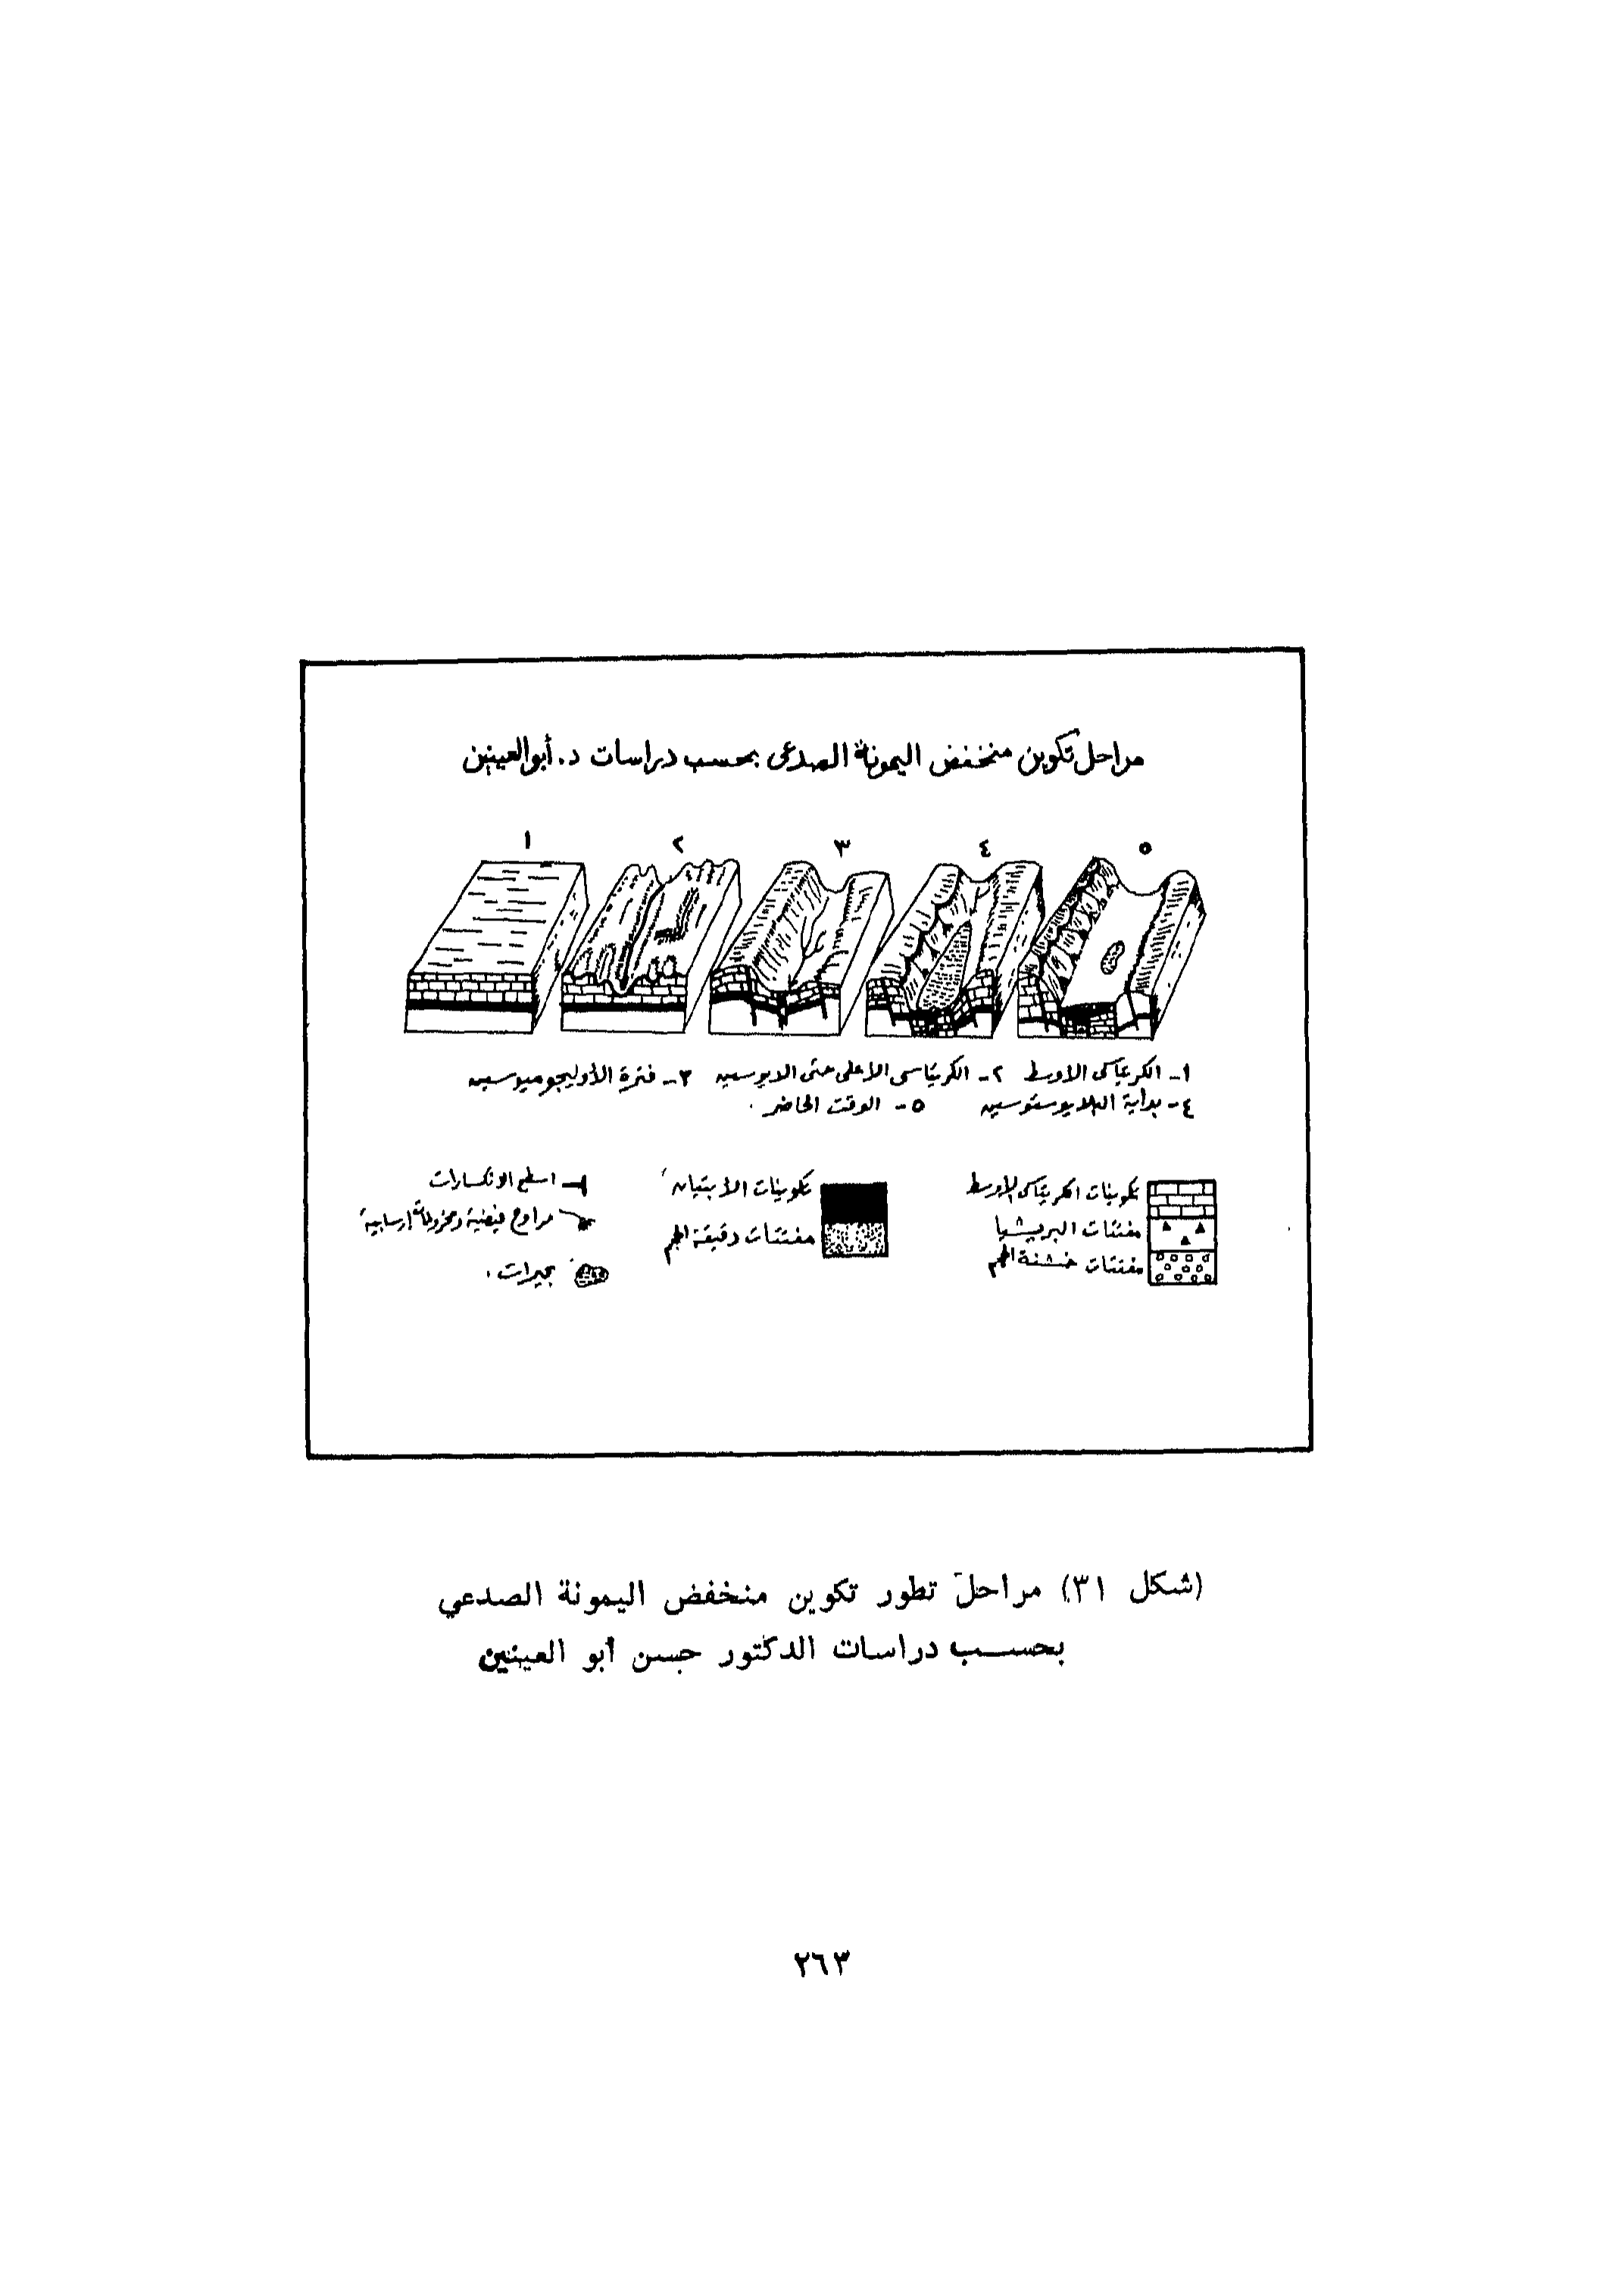 مراحل تكوين منخفض اليمونة الصدعى بحسب دراسات د. أبو العينين
١ ٢ ٣ ٤ ٥
١- الكريتاسى الاوسط ٢- الكريتاسى الاعلى حتى الايوسين ٣- فترة الأوليجوميوسين
٤- بداية البلايوستوسين ٥- الوقت الحاضر.
تكوينات الكريتاسى الاوسط
مفتتات البريشيا
مفتتات خشنة الحجم
تكوينات الأبتيان
مفتتات دقيقة الحجم
اسطح الانكسارات
مراوح فيضية ومخروطات ارسابية
بحيرات.
(شكل ٣١) مراحل تطور تكوين منخفض اليمونة الصدعي
بحسب دراسات الدكتور حسن أبو العينين
٢٦٣